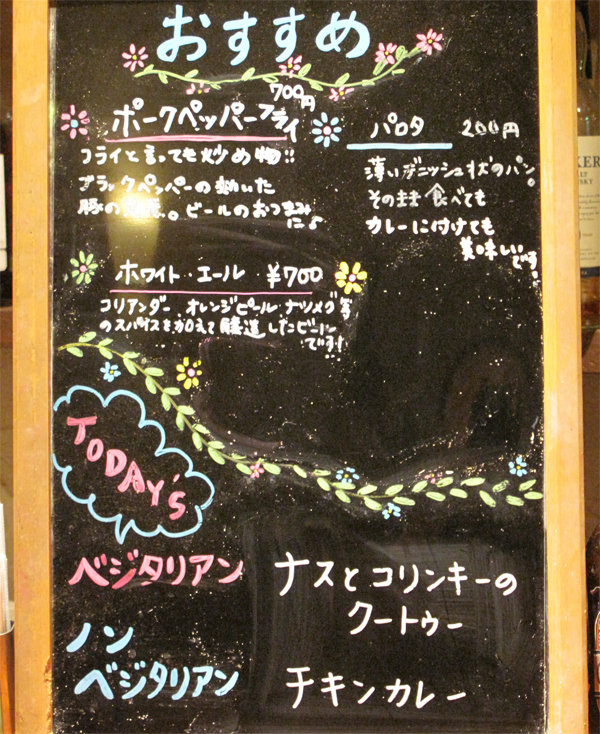 おすすめ
700円
ポークペッパーフライ
フライと言っても炒め物!!
ブラックペッパーの効いた
豚の 。ビールのおつまみ
に♪
パロタ 200円
薄いデニッシュ状のパン。
そのまま食べても
カレーに付けても
美味しい
です!
ホワイト・エール ¥700
コリアンダー、オレンジピール、ナツメグ等
のスパイスを加えて醸造したビール
です!
TODAY'S
ベジタリアン
ナスとコリンキーの
クートゥー
ノン
ベジタリアン
チキンカレー
KER
LT
SKY